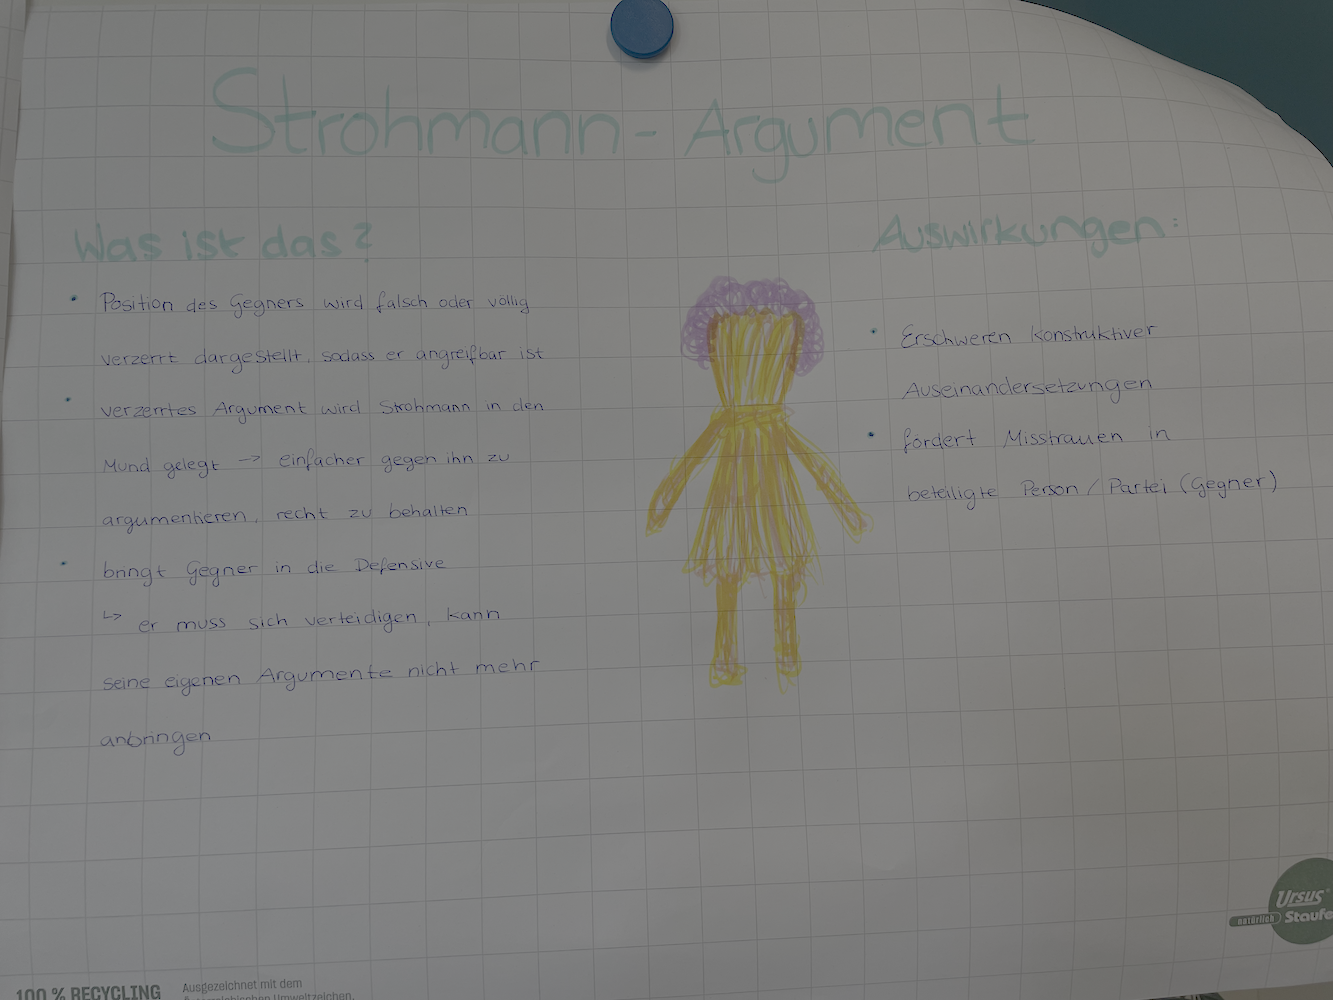 Strohmann - Argument
Was ist das?
• Position des Gegners wird falsch oder völlig
verzerrt dargestellt, sodass er angreifbar ist
• verzerrtes Argument wird Strohmann in den
Mund gelegt -> einfacher gegen ihn zu
argumentieren, recht zu behalten
• bringt Gegner in die Defensive
↳ er muss sich verteidigen, kann
seine eigenen Argumente nicht mehr
anbringen
Auswirkungen:
• Erschweren konstruktiver
Auseinandersetzungen
• fördert Misstrauen in
beteiligte Person / Partei (Gegner)
Ursus
natürlich Staufe
100 % RECYCLING
Ausgezeichnet mit dem
Österreichischen Umweltzeichen.